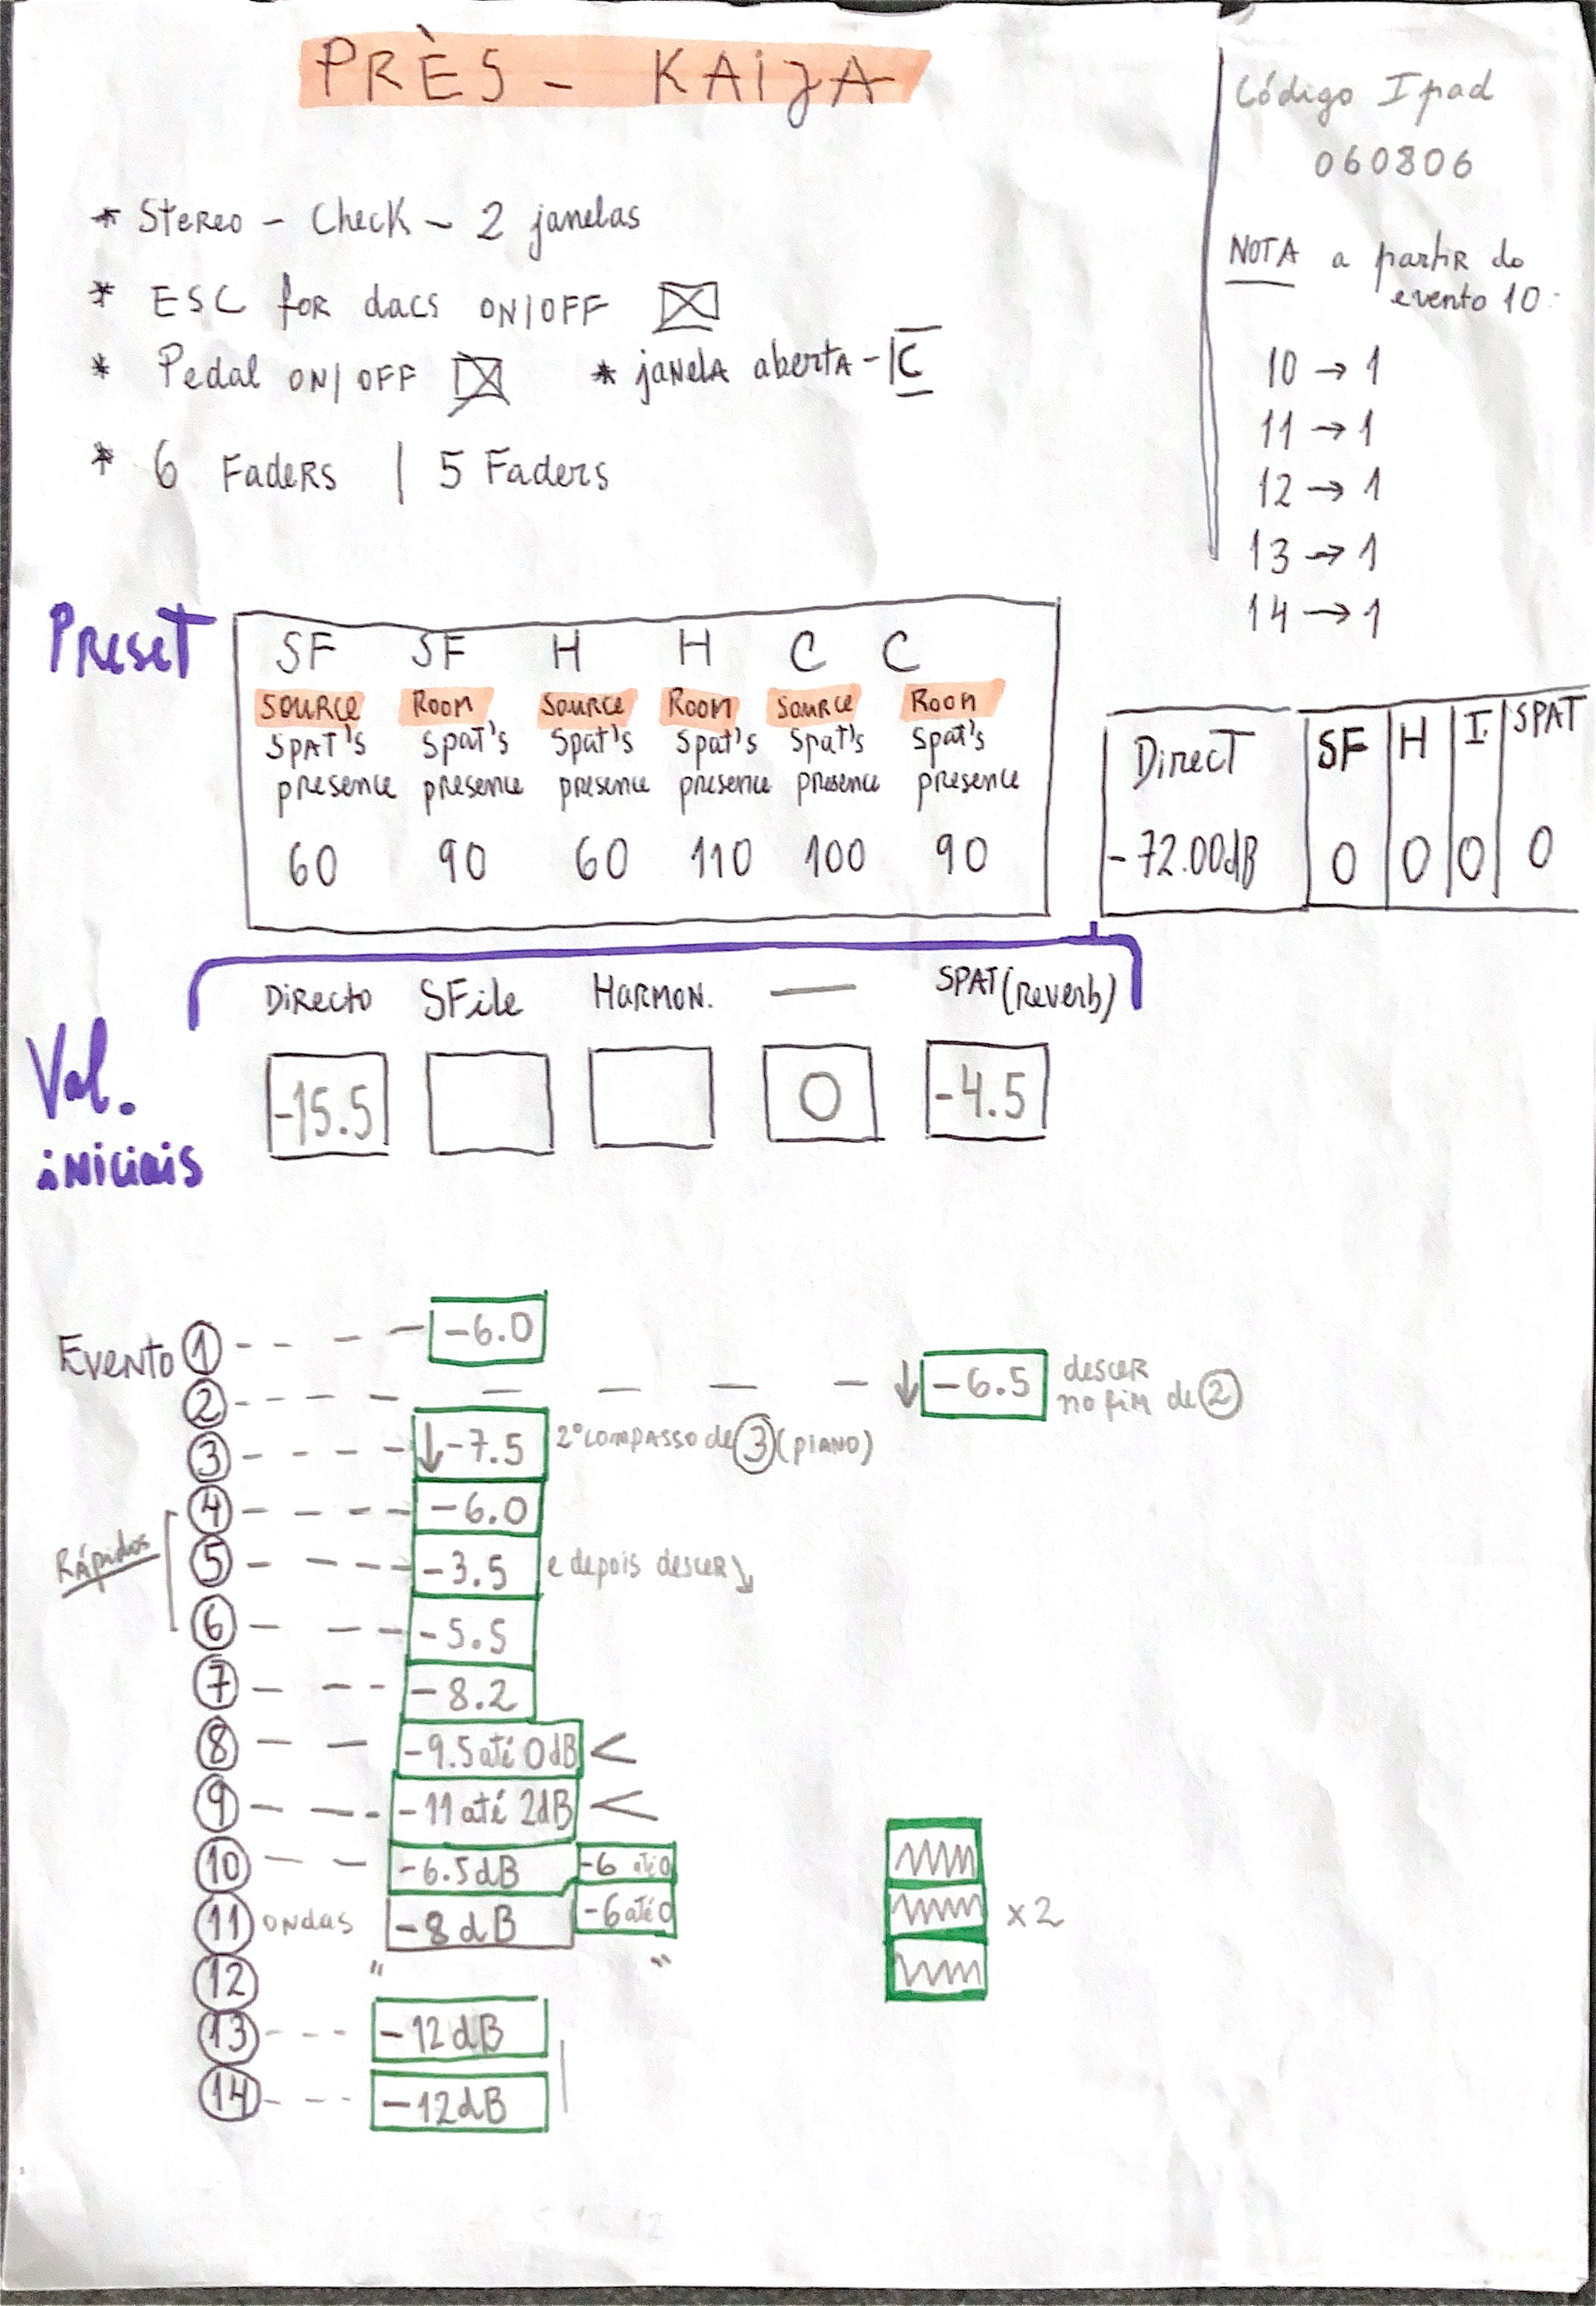 PRÈS - KAIJA
Código Ipad
060806
NOTA a partir do
evento 10
10 → 1
11 → 1
12 → 1
13 → 1
14 → 1
* Stereo - Check - 2 janelas
* ESC for dacs ON/OFF
* Pedal ON/OFF * janela aberta - IC
* 6 Faders | 5 Faders
Preset
SF SF H H C C
Source Room Source Room Source Room
Spat's Spat's Spat's Spat's Spat's Spat's
presence presence presence presence presence presence
60 90 60 110 100 90
Direct SF H I. SPAT
-72.00dB 0 0 0 0
Directo SFile Harmon. — SPAT (Reverb)
Val.
iniciais
-15.5 0 -4.5
Evento 1 -6.0
2 ↓ -6.5 descer
no fim de 2
3 ↓ -7.5 2º compasso de 3 (piano)
Rápidos
4 -6.0
5 -3.5 e depois descer ↘
6 -5.5
7 -8.2
8 -9.5 até 0dB <
9 -11 até 2dB <
10 -6.5dB -6 até 0
11 ondas -8dB -6 até 0
x2
12 " "
13 -12dB
14 -12dB